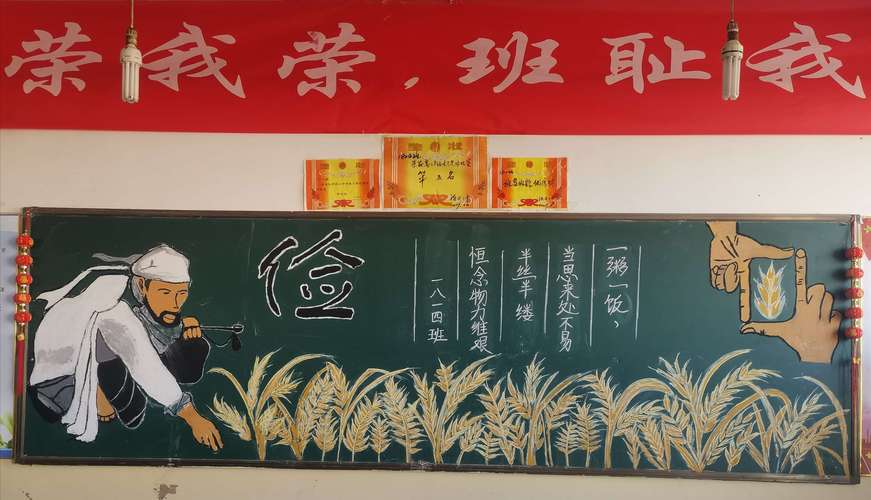 荣我荣,班耻我
第五名
俭
一粥一饭,
当思来处不易
半丝半缕
恒念物力维艰
一八一四班